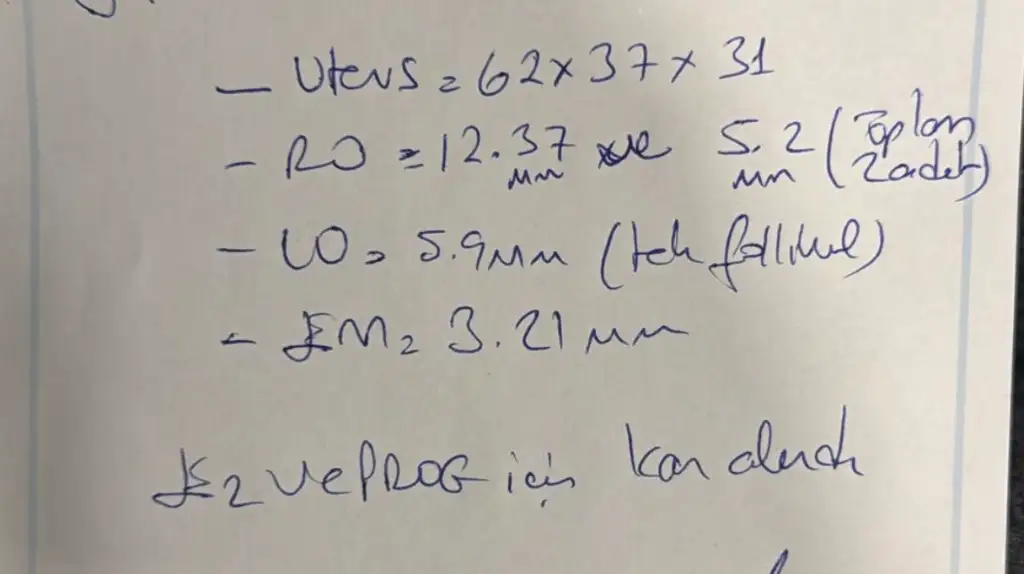 - Uterus = 62 x 37 x 31
- RO = 12.37 mm ve 5.2 mm (Toplam 2 adet)
- LO = 5.9 mm (tek follikul)
- EM = 3.21 mm
E2 ve PROG için kan alındı